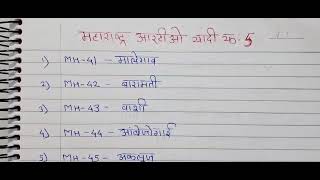 महाराष्ट्र आरटीओ यादी क्र. 5
1) MH-41 - मालेगाव
2) MH-42 - बारामती
3) MH-43 - वाशी
4) MH-44 - आंबेजोगाई
5) MH-45 - अकलूज